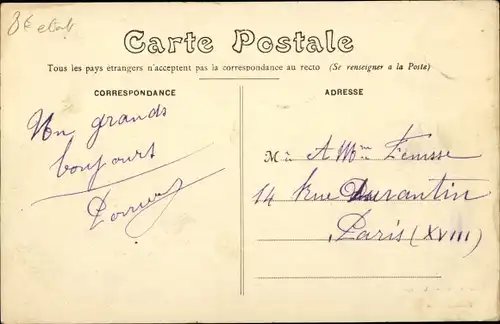 Carte Postale
Tous les pays étrangers n'acceptent pas la correspondance au recto (Se renseigner a la Poste)
CORRESPONDANCE
ADRESSE
Un grands
bonjours
M
A Mme
14 Rue Durantin
Paris (XVIII)